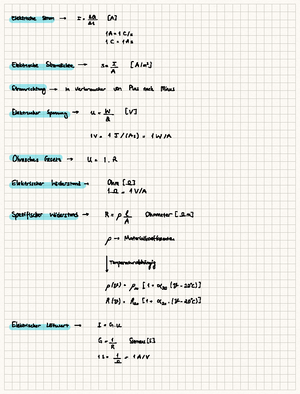 Elektrischer Strom → I = ΔQ/Δt [A]
1A = 1 C/s
1 C = 1 As
Elektrische Stromdichte → J = I/A [A/m²]
Stromrichtung → in Verbraucher von Plus nach Minus
Elektrischer Spannung → U = W/Q [V]
1V = 1 J/(As) = 1 W/A
Ohmsches Gesetz → U = I . R
Elektrischer Widerstand → Ohm [Ω]
1 Ω = 1 V/A
Spezifischer Widerstand → R = ρ l/A Ohmmeter [Ω m]
ρ → Materialkoeffizienten
Temperaturabhängig
ρ(ϑ) = ρ₂₀ [1 + α₂₀ (ϑ - 20°C)]
R(ϑ) = R₂₀ [1 + α₂₀ (ϑ - 20°C)]
Elektrischer Leitwert → I = G.U
G = 1/R Siemens [S]
1 S = 1/Ω = 1 A/V